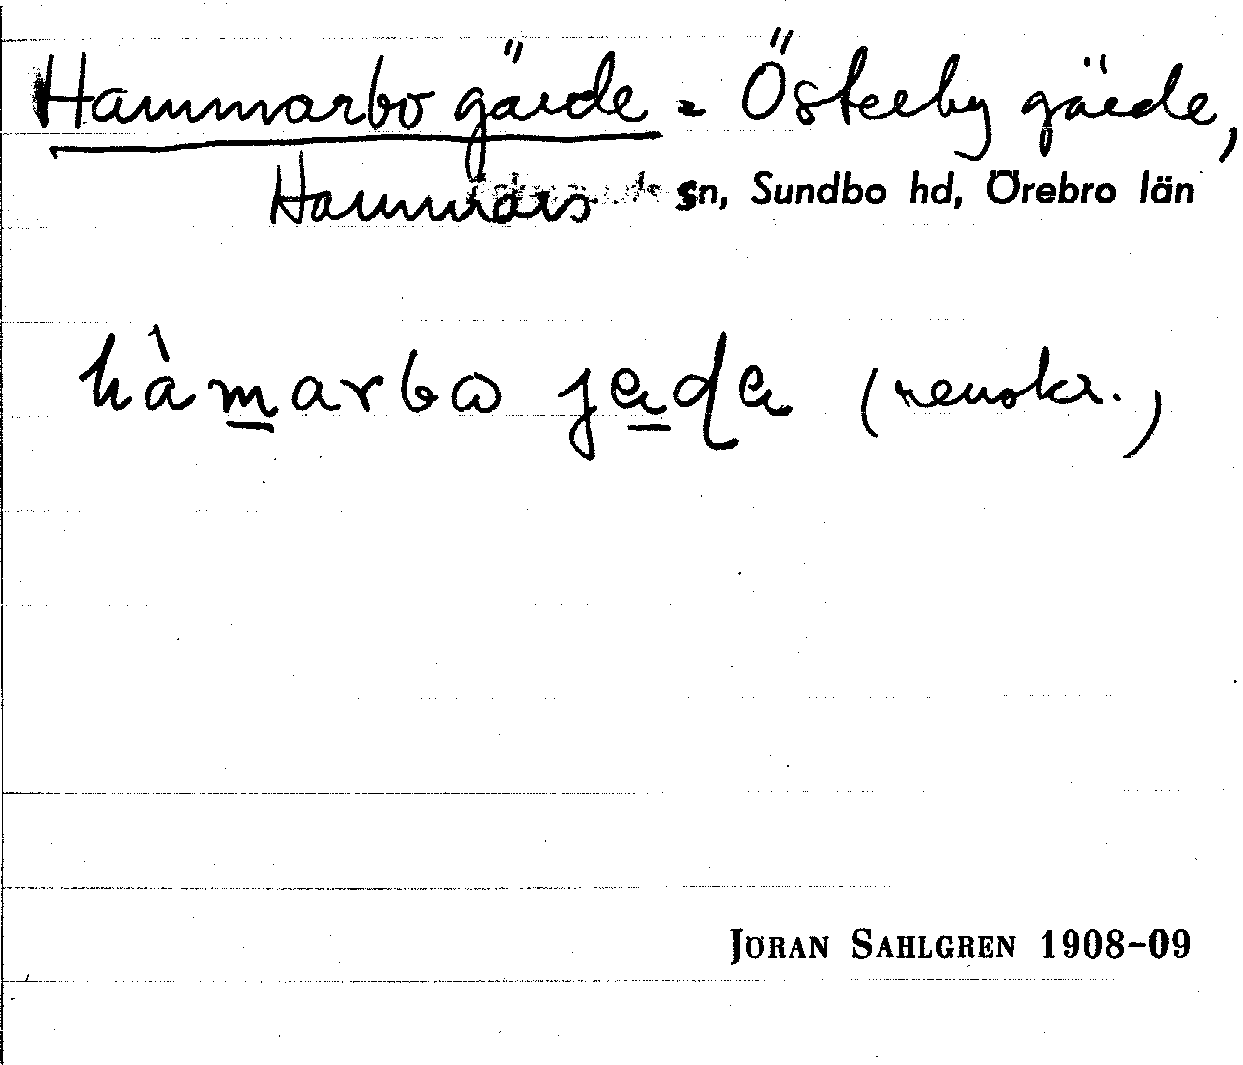 Hammarbo gärde = Österby gärde,
Hammars sn, Sundbo hd, Örebro län
hàmarbo jɐɖɐ (renskr.)
JÖRAN SAHLGREN 1908-09